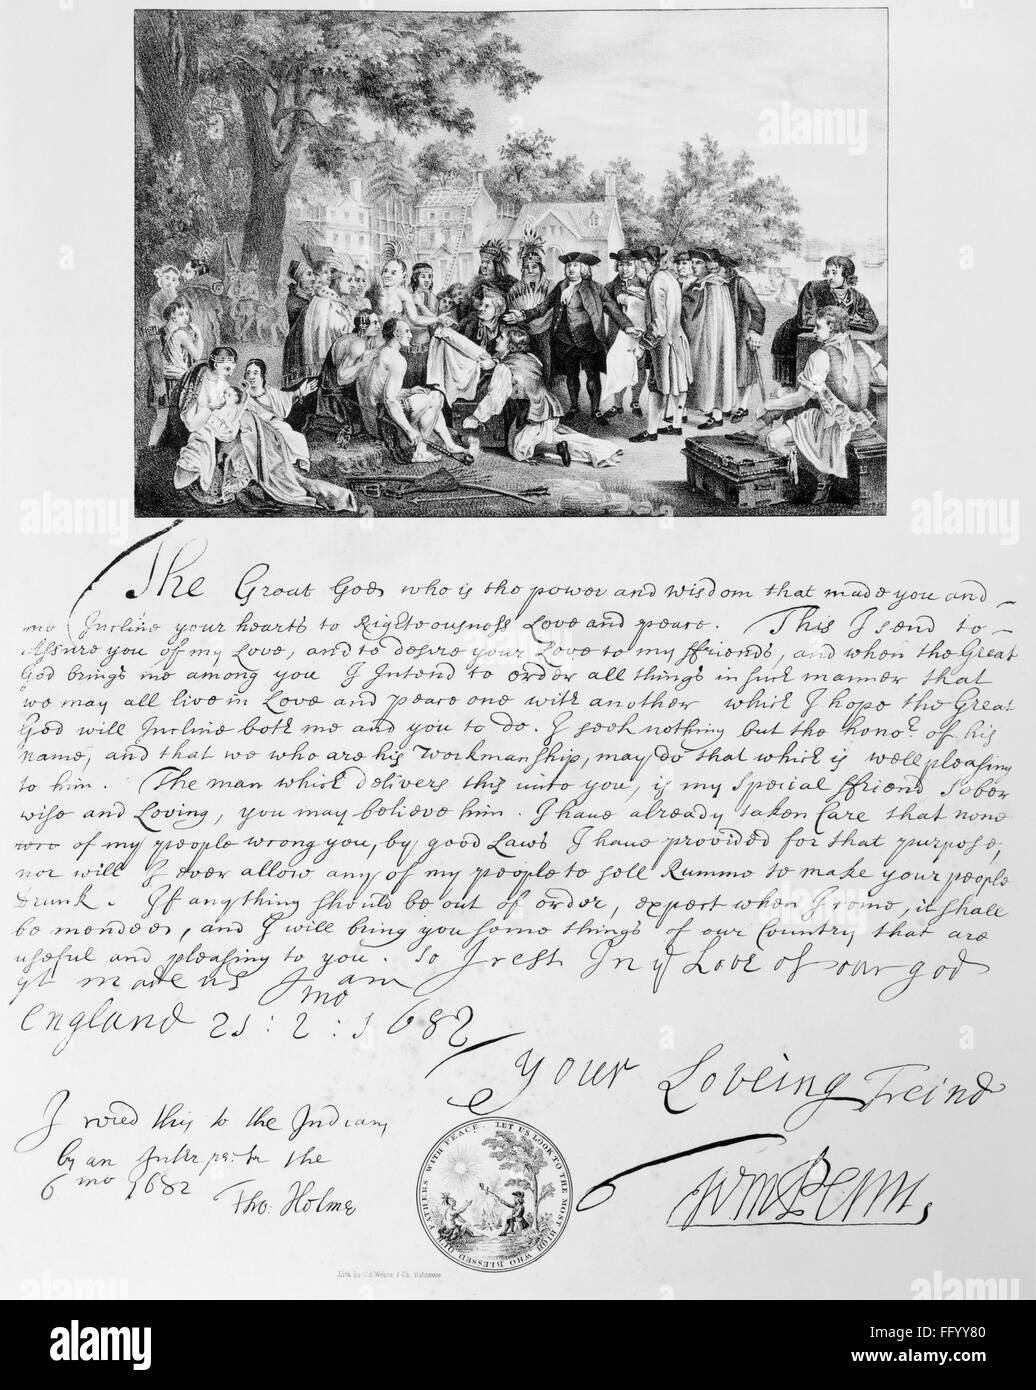 The Great God who is the power and wisdom that made you and
me Incline your hearts to Righteousness Love and peace. This I send to
Assure you of my Love, and to desire your Love to my ffriends, and when the Great
God brings me among you I Intend to order all things in such manner that
we may all live in Love and peace one with another which I hope the Great
God will Incline both me and you to do. I seek nothing but the honor of his
name, and that we who are his Workmanship, may do that which is well pleasing
to him. The man which delivers this unto you, is my Special ffriend Sober
wise and Loving, you may believe him. I have already taken Care that none
of my people wrong you, by good Laws I have provided for that purpose,
nor will I ever allow any of my people to sell Rumme to make your people
Drunk. If anything should be out of order, expect when I come, it shall
be mended, and I will bring you some things of our Country that are
useful and pleasing to you. So I rest In ye Love of our god
yt made us I am
mo
England 21 : 2 : 1682
your Loveing Freind
I read this to the Indians
by an Interpreter the
6 mo 1682
Tho: Holme
WmPenn
OUR FATHERS WITH PEACE. LET US LOOK TO THE MOST HIGH WHO BLESSED
Lith. by Ed. Weber & Co. Baltimore
alamy
a
alamy
alamy
a
a
alamy
alamy
a
alamy
Image ID: FFYY80
www.alamy.com